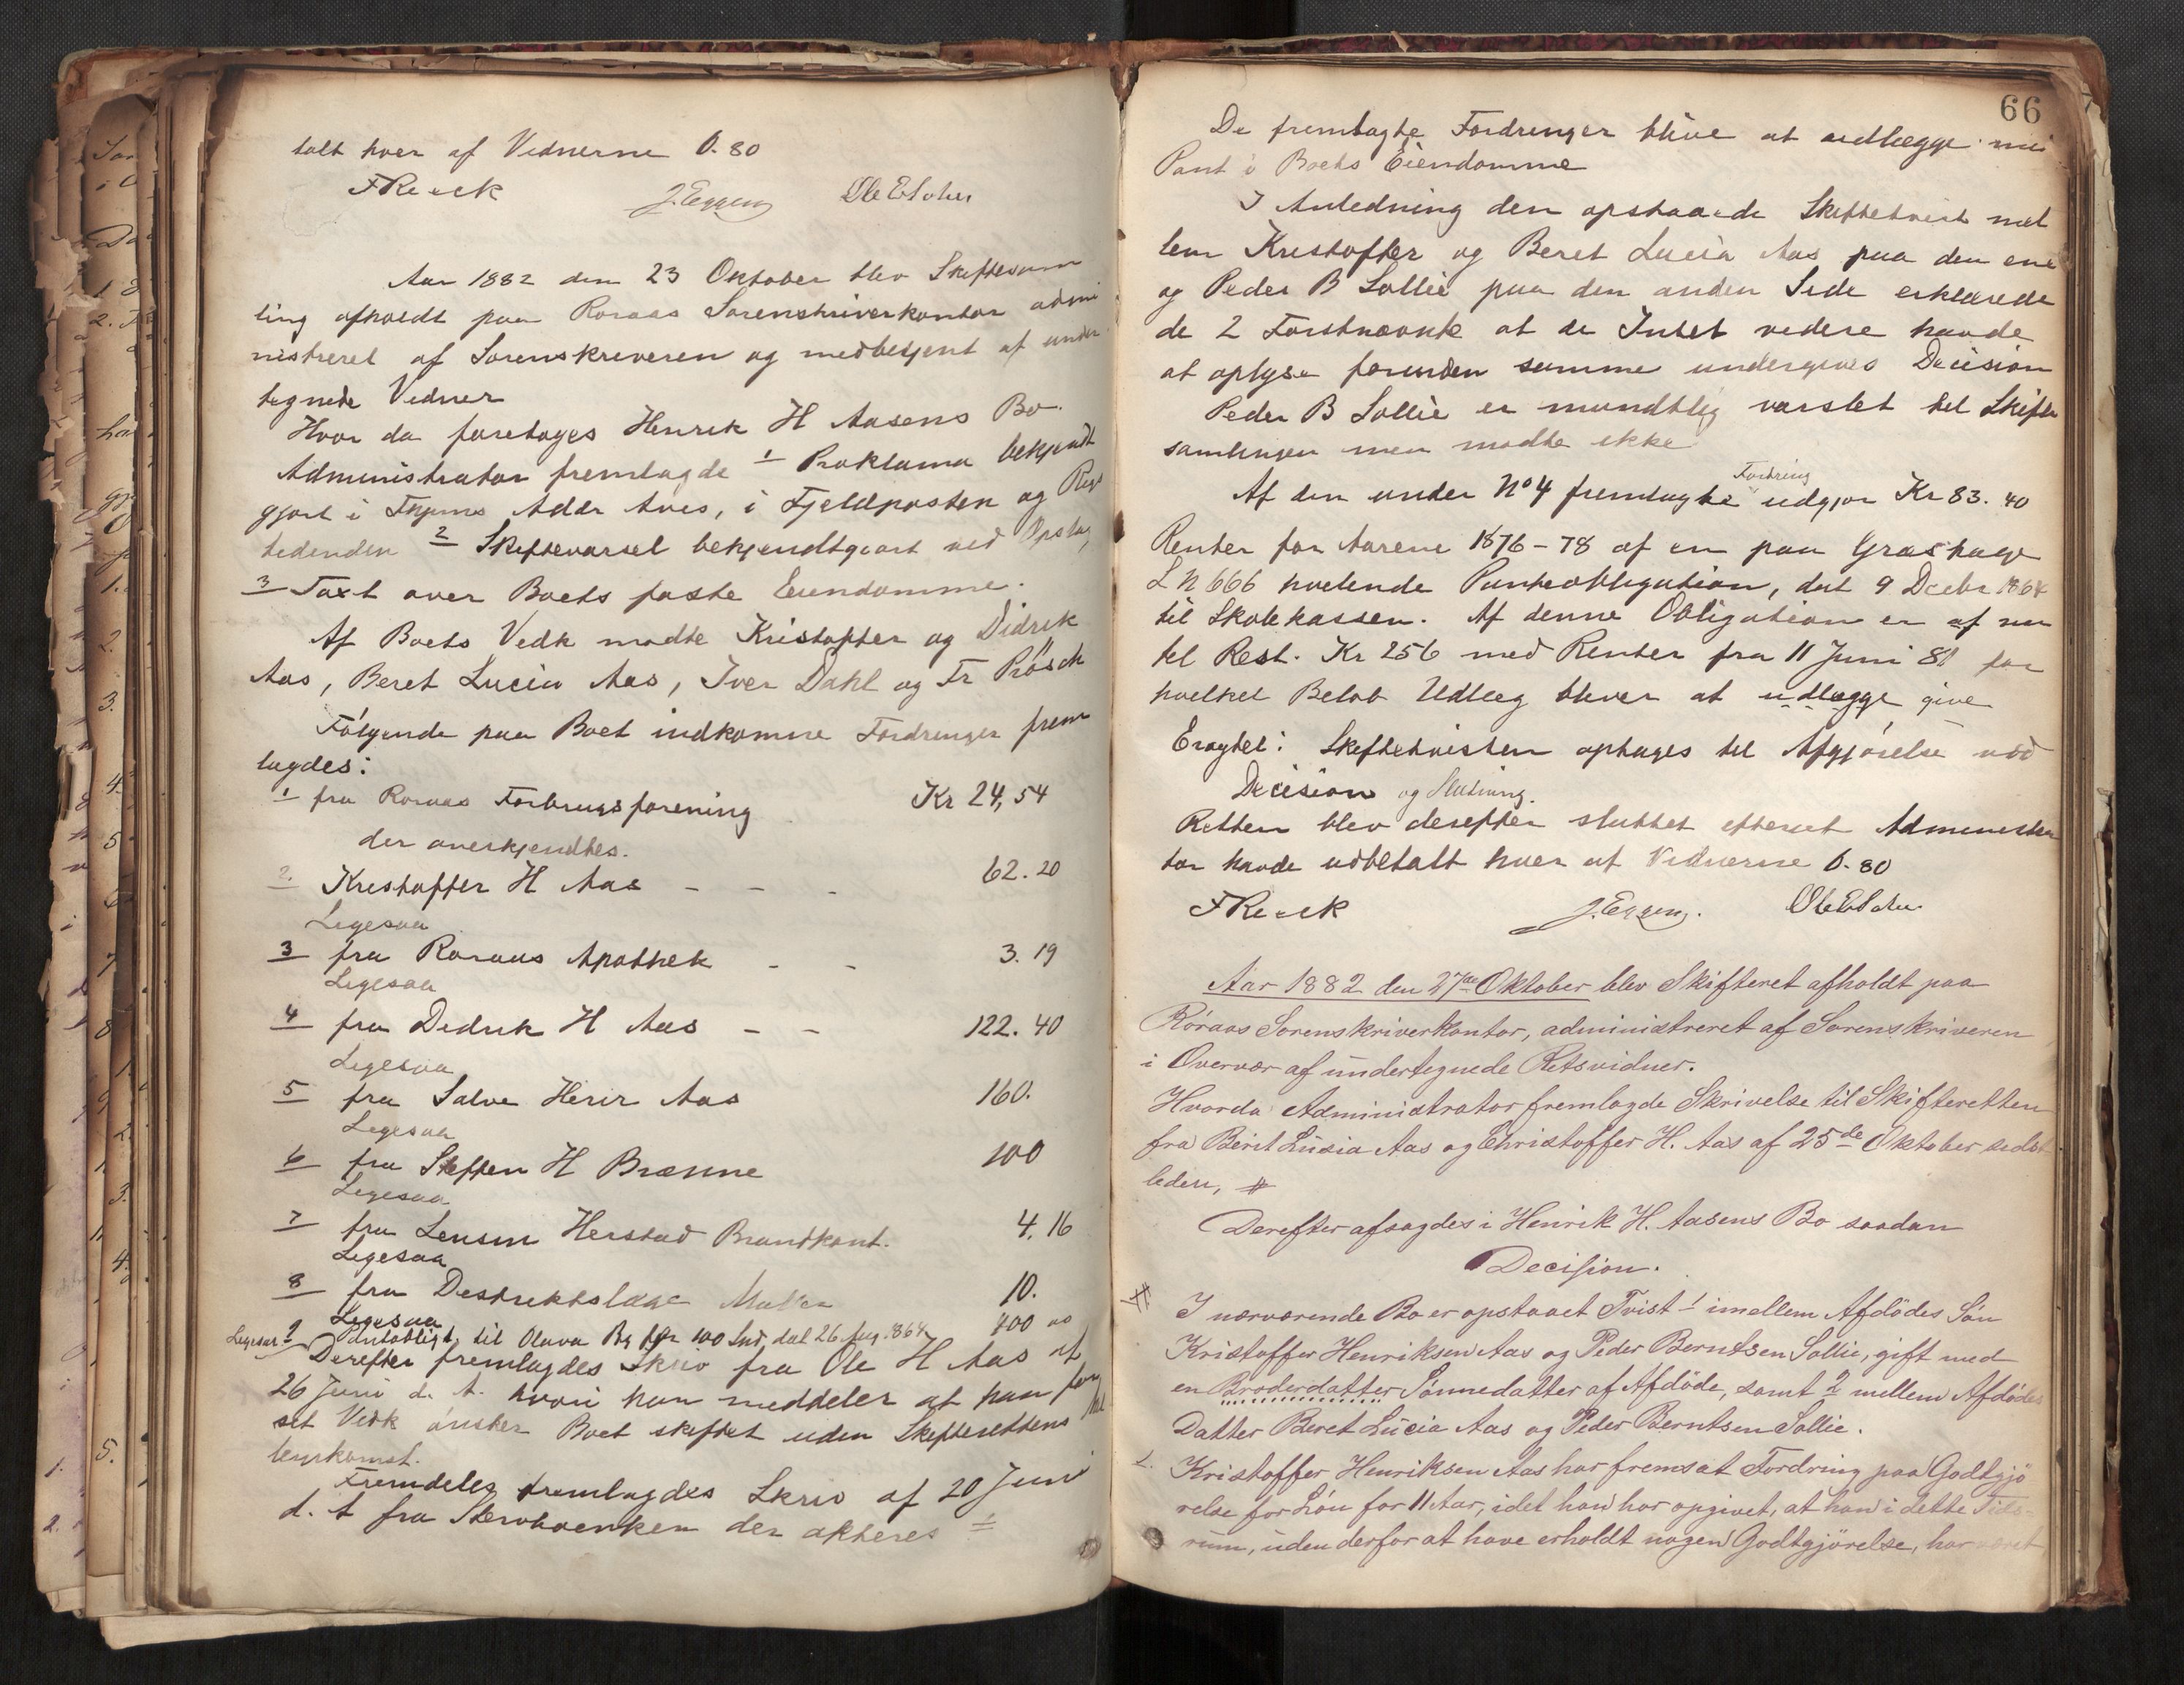 talt hver af Vidnerne 0.80
FReeck J. Eggen Ole
Aar 1882 den 23 Oktober blev Skiftesam
ling afholdt paa Roraas Sorenskriverkontor admi
nistreret af Sorenskriveren og medbetjent af under
tegnede Vidner
Hvor da foretoges Henrik H Aasens Bo.
Administrator fremlagde 1 Proklama bekjendt
gjort i Thjems Addr Avis, i Fjeldposten og Rigs
tidenden 2 Skiftevarsel bekjendtgjort ved Opslag
3 Taxt over Boets faste Eiendomme.
Af Boets Vedk modte Kristoffer og Didrik
Aas, Beret Lucia Aas, Iver Dahl og Fr Prösch
Følgende paa Boet indkomne Fordringer frem
lagdes:
1 fra Roraas Forbrugsforening Kr 24,54
der anerkjendtes.
2. Kristoffer H Aas - - - 62.20
Ligesaa
3 fra Roraas Apothek - - 3.19
Ligesaa
4 fra Didrik H Aas - - 122.40
Ligesaa
5 fra Salve Aas 160.
Ligesaa
6 fra Steffen H Brænne 100
Ligesaa
7 fra Lensm Herstad Brandkont. 4.16
Ligesaa
8 fra Distriktslæge Møller 10.
Ligesaa
Ligesaa 9 Pantobligt. til Olava for 100 dat 26 Aug. 1864 400 00
Derefter fremlagdes Skriv fra Ole H Aas af
26 Juni d. A. hvori han meddeler at han for
sit Vedk ønsker Boet skiftet uden Skifterettens Mel
lemkomst.
Fremdeles fremlagdes Skriv af 20 Juni
d. A fra Stervboenken der akteres
66
De fremlagte Fordringer blive at udlægge med
Pant i Boets Eiendomme
I Anledning den opstaaede Skiftetvist mel
lem Kristoffer og Beret Lucia Aas paa den ene
og Peder B Sollie paa den anden Side erklærede
de 2 Forstnævnte at de Intet videre havde
at oplyse forinden samme undergives Decision
Peder B Sollie er mundtlig varslet til Skifte
samlingen men modte ikke
Fordring
Af den under No 4 fremlagte udgjor Kr 83.40
Renter for Aarene 1876-78 af en paa Græshage
L N 666 hvilende Panteobligation, dat 9 Decbr 1864
til Skolekassen. Af denne Obligation er af nu
til Rest. Kr 256 med Renter fra 11 Juni 81 for
hvilket Belob Udlæg bliver at udlægge give
Eragtet: Skiftetvisten optages til Afgjörelse ved
Decision og Slutning.
Retten blev derefter sluttet efterat Administra
tor havde udbetalt hver af Vidnerne 0.80
FReeck J. Eggen. Ole
Aar 1882 den 27de Oktober blev Skifteret afholdt paa
Röraas Sorenskriverkontor, administreret af Sorenskriveren
i Overvær af undertegnede Retsvidner.
Hvorda Administrator fremlagde Skrivelse til Skifteretten
fra Berit Lusia Aas og Christoffer H. Aas af 25de Oktober sidst
leden, #
Derefter afsagdes i Henrik H. Aasens Bo saadan
Decision.
# I nærværende Bo er opstaaet Tvist 1 imellem Afdödes Sön
Kristoffer Henriksen Aas og Peder Berntsen Sollie, gift med
en Broderdatter Sönnedatter af Afdöde, samt 2 mellem Afdödes
Datter Beret Lucia Aas og Peder Berntsen Sollie.
1. Kristoffer Henriksen Aas har fremsat Fordring paa Godtgjö
relse for Lön for 11 Aar, idet han har opgivet, at han i dette Tids-
rum, uden derfor at have erholdt nogen Godtgjörelse, har været